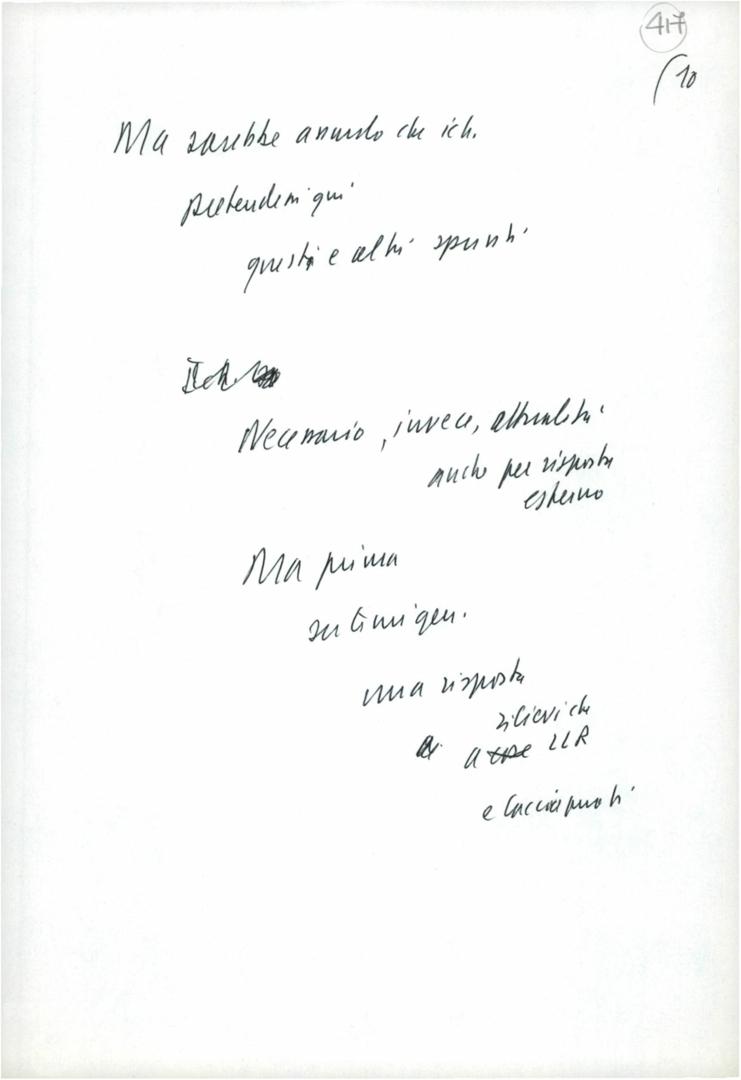 417
(10
Ma sarebbe assurdo che ich.
pretendessi qui
questi e altri spunti
Necessario, invece, attualità
anche per risposta
esterno
Ma prima
una risposta
rilievi che
a LLR
e Cacciapuoti